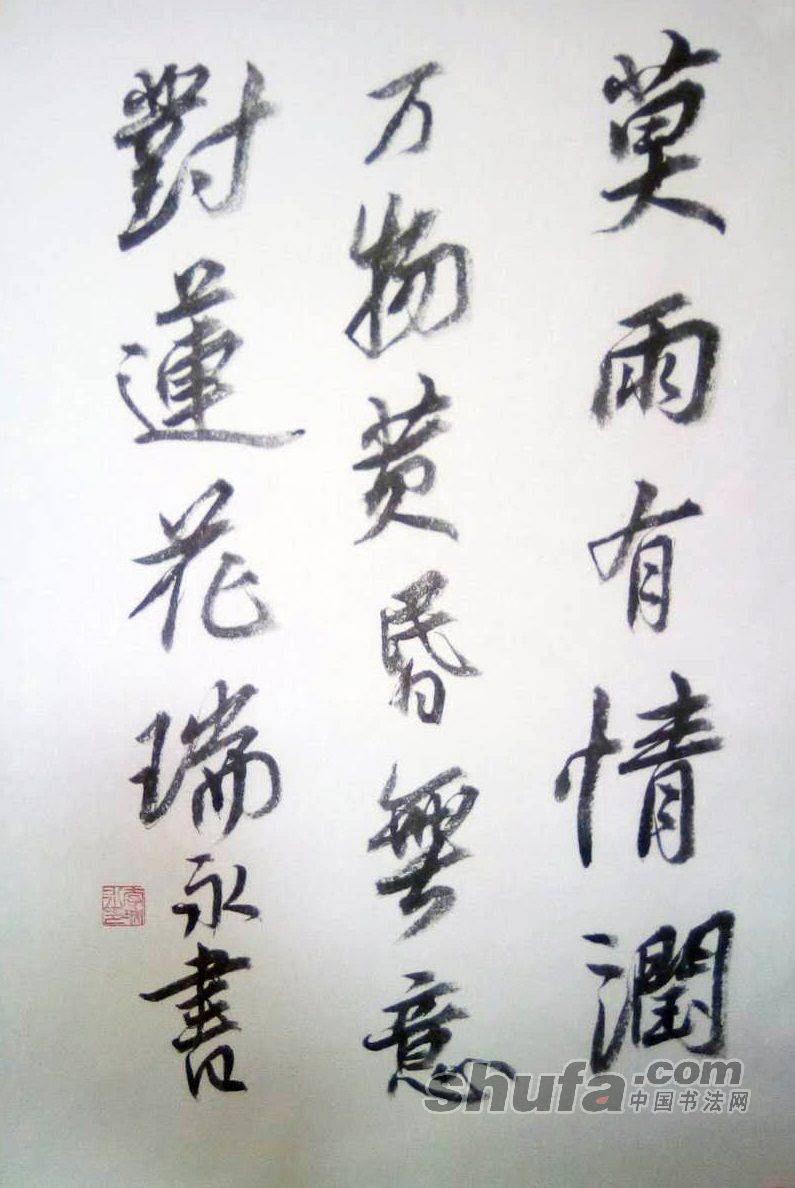 莫雨有情潤
万物黄昏無意
對蓮花瑞永書
shufa.com
中国书法网